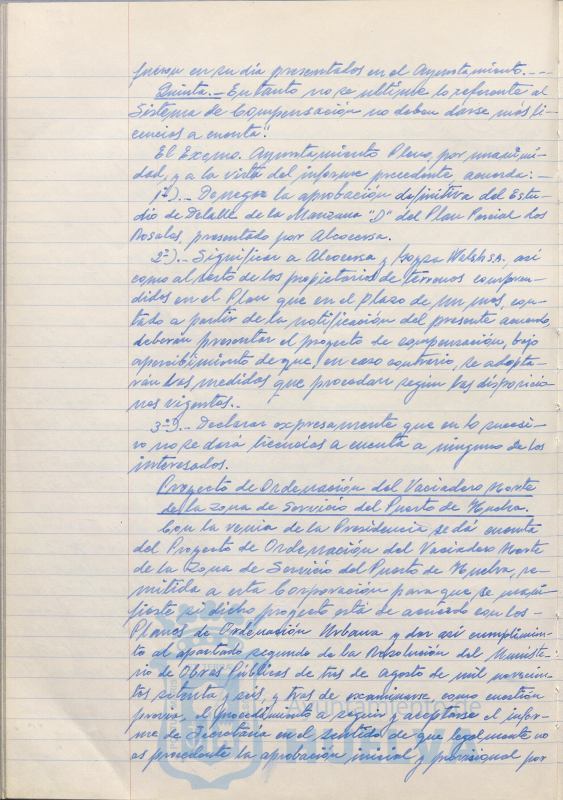 fuesen en su día presentados en el Ayuntamiento.----
Quinta.- En tanto no se ultime lo referente al
Sistema de Compensación no deben darse más li-
cencias a cuenta".
El Excmo. Ayuntamiento Pleno, por unanimi-
dad, y a la vista del informe precedente acuerda:-
1º).- Denegar la aprobación definitiva del Estu-
dio de Detalle de la Manzana "D" del Plan Parcial Los
Rosales, presentado por Alcocersa.
2º).- Significar a Alcocersa y Walsh S.A. así
como al resto de los propietarios de terrenos compren-
didos en el Plan que en el plazo de un mes, con-
tado a partir de la notificación del presente acuerdo,
deberán presentar el proyecto de compensación, bajo
apercibimiento de que, en caso contrario, se adopta-
rán las medidas que procedan según las disposicio-
nes vigentes..
3º).- Declarar expresamente que en lo sucesi-
vo no se dará licencias a cuenta a ninguno de los
interesados.
Proyecto de Ordenación del Vaciadero Norte
de la Zona de Servicio del Puerto de Huelva.
Con la venia de la Presidencia se dá cuenta
del Proyecto de Ordenación del Vaciadero Norte
de la Zona de Servicio del Puerto de Huelva, re-
mitida a esta Corporación para que se mani-
fieste si dicho proyecto está de acuerdo con los -
Planes de Ordenación Urbana y dar así cumplimien-
to al apartado segundo de la Resolución del Ministe-
rio de Obras Públicas de tres de agosto de mil novecien-
tos setenta y seis, y tras de examinarse, como cuestión
previa, el procedimiento a seguir y aceptarse el infor-
me de Secretaría en el sentido de que legalmente no
es procedente la aprobación inicial y provisional por
Ayuntamiento de
HUELVA